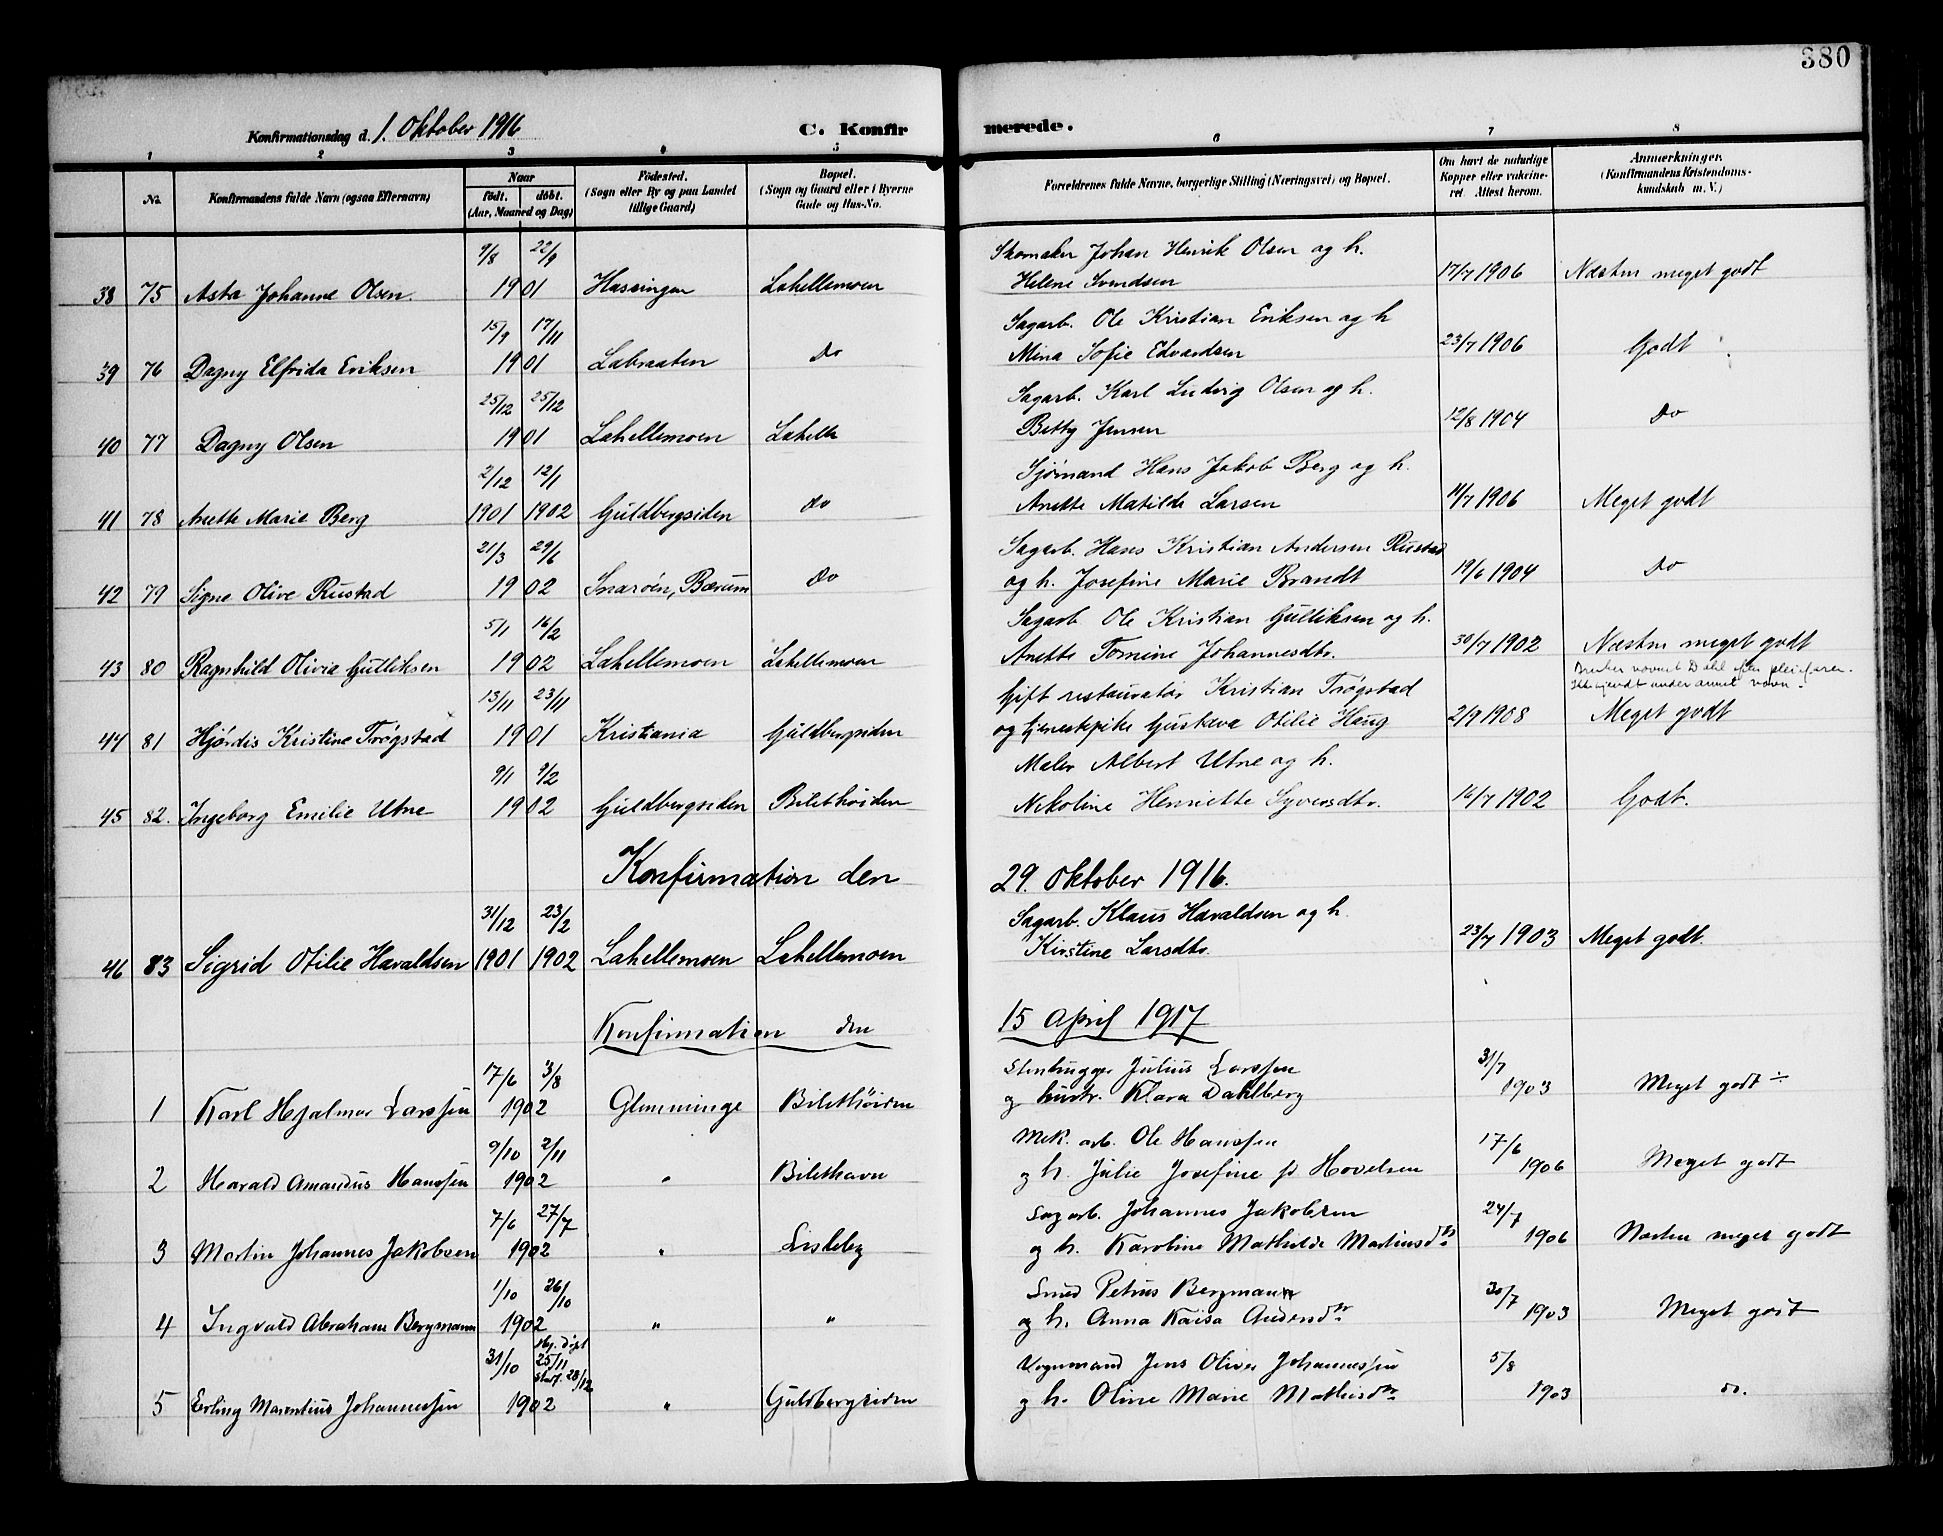 380
Konfirmationsdag d. 1. Oktober 1916
C. Konfirmerede.
1 2 3 4 5 6 7 8
No. Konfirmandens fulde Navn (ogsaa Efternavn) Naar født. døbt. (Aar, Maaned og Dag) Fødested. (Sogn eller By og paa Landet tillige Gaard) Bopæl. (Sogn og Gaard eller i Byerne Gade og Hus-No. Forældrenes fulde Navne, borgerlige Stilling (Næringsvei) og Bopæl. Om havt de naturlige Kopper eller vakcineret. Attest herom. Anmerkninger. (Konfirmandens Kristendomskundskab m. V.)
9/8 22/9 Skomaker Johan Henrik Olsen og h.
38 75 Asta Johanne Olsen. 1901 Hassingen Lahellemoen Helene Svendsen 17/7 1906 Næsten meget godt
15/9 17/11 Sagarb. Ole Kristian Eriksen og h
39 76 Dagny Elfrida Eriksen 1901 Labraaten Do Mina Sofie Edvardsen 23/7 1906 Godt
25/12 25/12 Sagarb. Karl Ludvig Olsen og h.
40 77 Dagny Olsen 1901 Lahellemoen Lahelle Betty Jensen 12/8 1904 Do
2/12 12/1 Sjømand Hans Jakob Berg og h.
41 78 Anette Marie Berg 1901 1902 Guldbergsiden Do Anette Matilde Larsen 14/7 1906 Meget godt
21/3 29/6 Sagarb. Hans Kristian Andersen Rustad
42 79 Signe Olive Rustad 1902 Snarøen, Bærum Do og h. Josefine Marie Brandt 19/6 1904 Do
5/1 16/2 Sagarb Ole Kristian Gulliksen og h.
43 80 Ragnhild Olivia Gulliksen 1902 Lahellemoen Lahellemoen Anette Tomine Johannesdtr. 30/7 1902 Næsten meget godt
Bruker navnet Dahl efter pleiefaren.
Ikke kjendt under annet navn.
13/11 23/11 Gift restauratør Kristian Trøgstad
44 81 Hjørdis Kristine Trøgstad 1901 Kristiania Guldbergsiden og tjenestpike Gustava Otilie Haug 2/9 1908 Meget godt
9/1 9/2 Maler Albert Utne og h.
45 82. Ingeborg Emilie Utne 1902 Guldbergsiden Bilethøiden Nikoline Henriette Syversdtr. 16/7 1902 Godt.
Konfirmation den 29. Oktober 1916.
31/12 23/2 Sagarb. Klaus Havaldsen og h.
46 83 Sigrid Otilie Havaldsen 1901 1902 Lahellemoen Lahellemoen Kirstine Larsdtr. 23/7 1903 Meget godt.
Konfirmation den 15 April 1917
17/6 3/8 Stenhugger Julius Larssen 31/7
1 Karl Hjalmar Larssen 1902 Glemminge Bilethøiden og hustr. Klara Dahlberg 1903 Meget godt ÷
9/10 2/11 Mek. arb. Ole Hanssen 17/6
2 Harald Amandus Hanssen 1902 " Bilethavn og h. Julie Josefine f. Hovelsen 1906 Meget godt
7/6 27/7 Sag arb. Johannes Jakobsen 24/7
3 Martin Johannes Jakobsen 1902 " Lisleby og h. Karoline Mathilde Martinsdtr 1906 Næsten meget godt
1/10 26/10 Smed Petrus Bergmann 30/7
4 Ingvald Abraham Bergmann 1902 " " og h. Anna Kaisa Andersdtr 1903 Meget godt
31/10 Hj. døpt 25/11 Stadf. 28/12 Vognmand Jens Oliver Johannessen 5/8
5 Erling Marentius Johannessen 1902 " Guldbergsiden og h. Oline Marie Mathisdtr 1903 do.